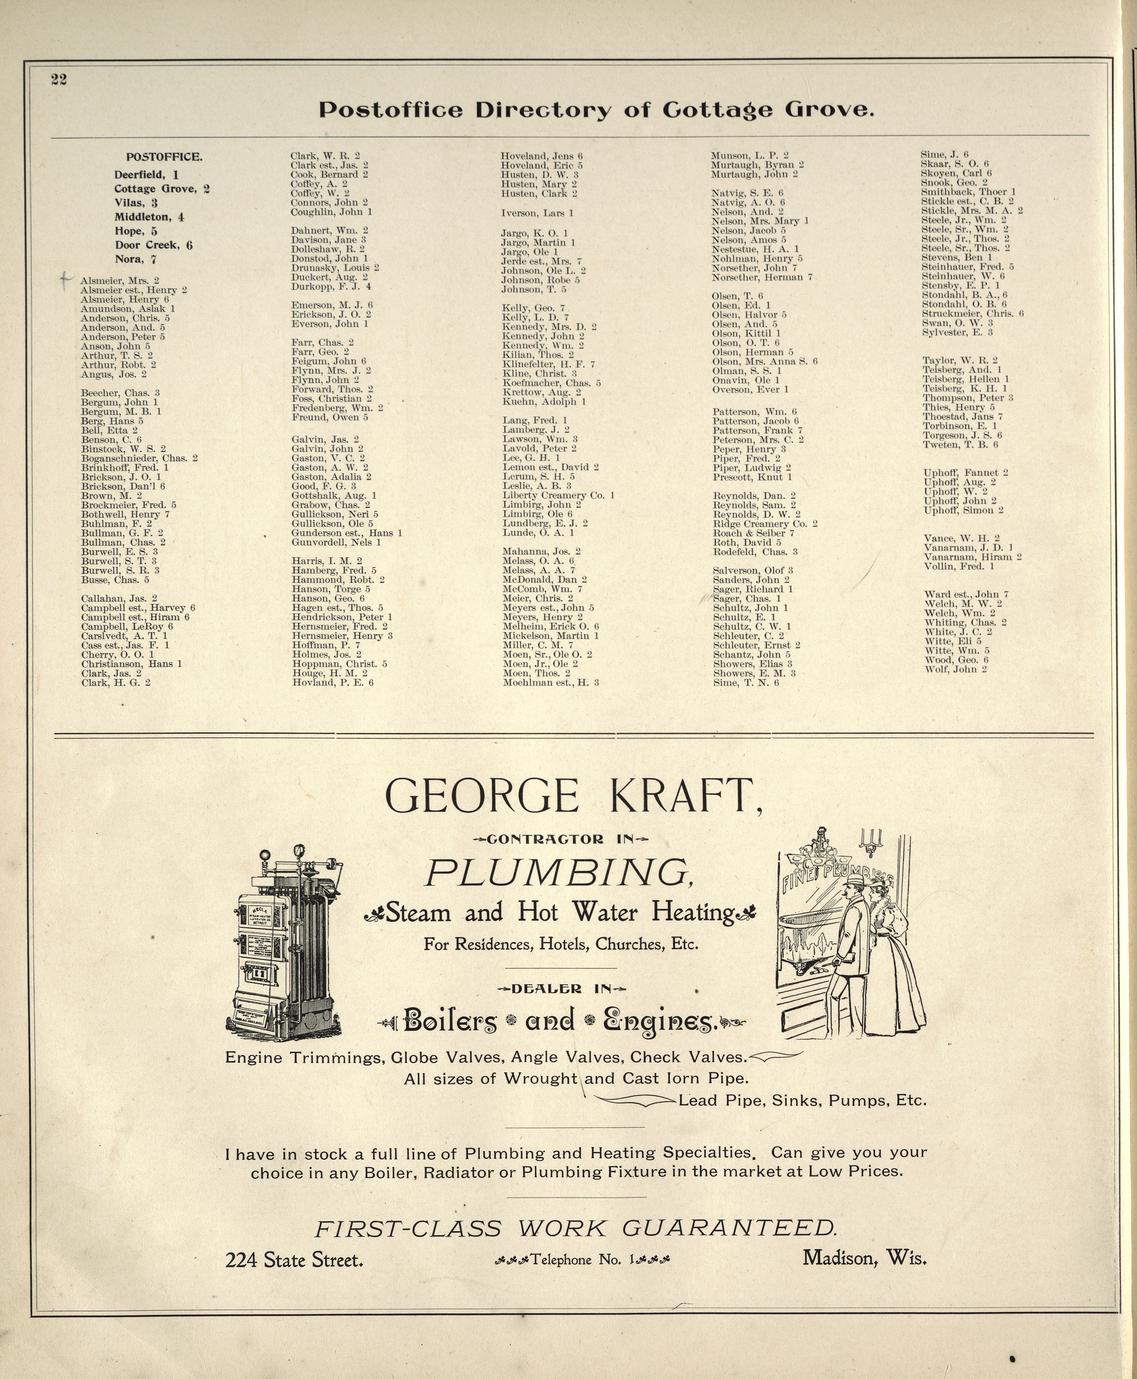 22
Postoffice Directory of Cottage Grove.
POSTOFFICE.
Deerfield, 1
Cottage Grove, 2
Vilas, 3
Middleton, 4
Hope, 5
Door Creek, 6
Nora, 7
Alsmeier, Mrs. 2
Alsmeier est., Henry 2
Alsmeier, Henry 6
Amundson, Aslak 1
Anderson, Chris. 5
Anderson, And. 5
Anderson, Peter 5
Anson, John 5
Arthur, T. S. 2
Arthur, Robt. 2
Angus, Jos. 2
Beecher, Chas. 3
Bergum, John 1
Bergum, M. B. 1
Berg, Hans 5
Bell, Etta 2
Benson, C. 6
Binstock, W. S. 2
Boganschnieder, Chas. 2
Brinkhoff, Fred. 1
Brickson, J. O. 1
Brickson, Dan'l 6
Brown, M. 2
Brockmeier, Fred. 5
Bothwell, Henry 7
Buhlman, F. 2
Bullman, G. F. 2
Bullman, Chas. 2
Burwell, E. S. 3
Burwell, S. T. 3
Burwell, S. R. 3
Busse, Chas. 5
Callahan, Jas. 2
Campbell est., Harvey 6
Campbell est., Hiram 6
Campbell, LeRoy 6
Carslvedt, A. T. 1
Cass est., Jas. F. 1
Cherry, O. O. 1
Christianson, Hans 1
Clark, Jas. 2
Clark, H. G. 2
Clark, W. R. 2
Clark est., Jas. 2
Cook, Bernard 2
Coffey, A. 2
Coffey, W. 2
Connors, John 2
Coughlin, John 1
Dahnert, Wm. 2
Davison, Jane 3
Dolleshaw, R. 2
Donstod, John 1
Drunasky, Louis 2
Duckert, Aug. 2
Durkopp, F. J. 4
Emerson, M. J. 6
Erickson, J. O. 2
Everson, John 1
Farr, Chas. 2
Farr, Geo. 2
Feigum, John 6
Flynn, Mrs. J. 2
Flynn, John 2
Forward, Thos. 2
Foss, Christian 2
Fredenberg, Wm. 2
Freund, Owen 5
Galvin, Jas. 2
Galvin, John 2
Gaston, V. C. 2
Gaston, A. W. 2
Gaston, Adalia 2
Good, F. G. 3
Gottshalk, Aug. 1
Grabow, Chas. 2
Gullickson, Nerl 5
Gullickson, Ole 5
Gunderson est., Hans 1
Gunvordell, Nels 1
Harris, I. M. 2
Hamberg, Fred. 5
Hammond, Robt. 2
Hanson, Torge 5
Hanson, Geo. 6
Hagen est., Thos. 5
Hendrickson, Peter 1
Hernsmeier, Fred. 2
Hernsmeier, Henry 3
Hoffman, P. 7
Holmes, Jos. 2
Hoppman, Christ. 5
Houge, H. M. 2
Hovland, P. E. 6
Hoveland, Jens 6
Hoveland, Eric 5
Husten, D. W. 3
Husten, Mary 2
Husten, Clark 2
Iverson, Lars 1
Jargo, K. O. 1
Jargo, Martin 1
Jargo, Ole 1
Jerde est., Mrs. 7
Johnson, Ole L. 2
Johnson, Robe 5
Johnson, T. 5
Kelly, Geo. 7
Kelly, L. D. 7
Kennedy, Mrs. D. 2
Kennedy, John 2
Kennedy, Wm. 2
Kilian, Thos. 2
Klinefelter, H. F. 7
Kline, Christ. 3
Koefnacher, Chas. 5
Krettow, Aug. 2
Kuehn, Adolph 1
Lang, Fred. 1
Lamberg, J. 2
Lawson, Wm. 3
Lavold, Peter 2
Lee, G. H. 1
Lemon est., David 2
Lerum, S. H. 5
Leslie, A. B. 3
Liberty Creamery Co. 1
Limbirg, John 2
Limbirg, Ole 6
Lundberg, E. J. 2
Lunde, O. A. 1
Mahanna, Jos. 2
Melass, O. A. 6
Melass, A. A. 7
McDonald, Dan 2
McComb, Wm. 7
Meier, Chris. 2
Meyers est., John 5
Meyers, Henry 2
Melheim, Erick O. 6
Mickelson, Martin 1
Miller, C. M. 7
Moen, Sr., Ole O. 2
Moen, Jr., Ole 2
Moen, Thos. 2
Moehlman est., H. 3
Munson, L. P. 2
Murtaugh, Byran 2
Murtaugh, John 2
Natvig, S. E. 6
Natvig, A. O. 6
Nelson, And. 2
Nelson, Mrs. Mary 1
Nelson, Jacob 5
Nelson, Amos 5
Nestestue, H. A. 1
Nohlman, Henry 5
Norsether, John 7
Norsether, Herman 7
Olsen, T. 6
Olsen, Ed. 1
Olsen, Halvor 5
Olsen, And. 5
Olson, Kittil 1
Olson, O. T. 6
Olson, Herman 5
Olson, Mrs. Anna S. 6
Olman, S. S. 1
Onavin, Ole 1
Overson, Ever 1
Patterson, Wm. 6
Patterson, Jacob 6
Patterson, Frank 7
Peterson, Mrs. C. 2
Peper, Henry 3
Piper, Fred. 2
Piper, Ludwig 2
Prescott, Knut 1
Reynolds, Dan. 2
Reynolds, Sam. 2
Reynolds, D. W. 2
Ridge Creamery Co. 2
Roach & Seiber 7
Roth, David 5
Rodefeld, Chas. 3
Salverson, Olof 3
Sanders, John 2
Sager, Richard 1
Sager, Chas. 1
Schultz, John 1
Schultz, E. 1
Schultz, C. W. 1
Schleuter, C. 2
Schleuter, Ernst 2
Schantz, John 5
Showers, Elias 3
Showers, E. M. 3
Sime, T. N. 6
Sime, J. 6
Skaar, S. O. 6
Skoyen, Carl 6
Snook, Geo. 2
Smithback, Thoer 1
Stickle est., C. B. 2
Stickle, Mrs. M. A. 2
Steele, Jr., Wm. 2
Steele, Sr., Wm. 2
Steele, Jr., Thos. 2
Steele, Sr., Thos. 2
Stevens, Ben 1
Steinhauer, Fred. 5
Steinhauer, W. 6
Stensby, E. P. 1
Stondahl, B. A., 6
Stondahl, O. B. 6
Struckmeier, Chris. 6
Swan, O. W. 3
Sylvester, E. 3
Taylor, W. R. 2
Teisberg, And. 1
Teisberg, Hellen 1
Teisberg, K. H. 1
Thompson, Peter 3
Thies, Henry 5
Thoestad, Jans 7
Torbinson, E. 1
Torgeson, J. S. 6
Tweten, T. B. 6
Uphoff, Fannet 2
Uphoff, Aug. 2
Uphoff, W. 2
Uphoff, John 2
Uphoff, Simon 2
Vance, W. H. 2
Vanarnam, J. D. 1
Vanarnam, Hiram 2
Vollin, Fred. 1
Ward est., John 7
Welch, M. W. 2
Welch, Wm. 2
Whiting, Chas. 2
White, J. C. 2
Witte, Eli 5
Witte, Wm. 5
Wood, Geo. 6
Wolf, John 2
GEORGE KRAFT,
CONTRACTOR IN
PLUMBING,
Steam and Hot Water Heating
For Residences, Hotels, Churches, Etc.
DEALER IN
Boilers and Engines.
FINE PLUMBING
Engine Trimmings, Globe Valves, Angle Valves, Check Valves.
All sizes of Wrought and Cast Iorn Pipe.
Lead Pipe, Sinks, Pumps, Etc.
I have in stock a full line of Plumbing and Heating Specialties. Can give you your
choice in any Boiler, Radiator or Plumbing Fixture in the market at Low Prices.
FIRST-CLASS WORK GUARANTEED.
224 State Street.
Telephone No. 1
Madison, Wis.